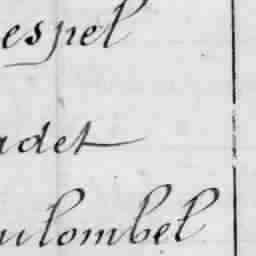 espel
adet
ulombel